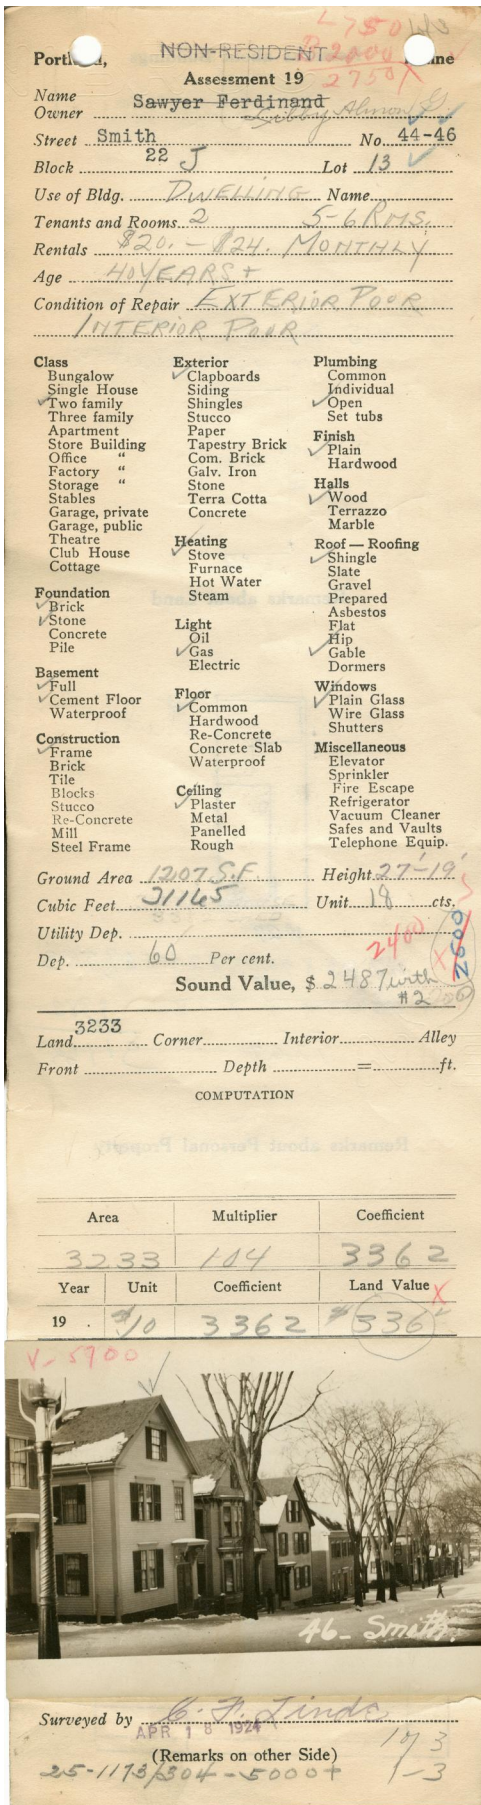 L 750
B 2000
2750 X
NON-RESIDENT
Assessment 19
Name
Owner Sawyer Ferdinand Libby Almon G.
Street Smith No. 44-46
Block 22 J Lot 13
Use of Bldg. DWELLING Name
Tenants and Rooms 2 5-6 RMS.
Rentals $20. - $24. MONTHLY
Age 40 YEARS +
Condition of Repair EXTERIOR POOR
INTERIOR POOR
Class
Bungalow
Single House
Two family
Three family
Apartment
Store Building
Office "
Factory "
Storage "
Stables
Garage, private
Garage, public
Theatre
Club House
Cottage
Foundation
Brick
Stone
Concrete
Pile
Basement
Full
Cement Floor
Waterproof
Construction
Frame
Brick
Tile
Blocks
Stucco
Re-Concrete
Mill
Steel Frame
Exterior
Clapboards
Siding
Shingles
Stucco
Paper
Tapestry Brick
Com. Brick
Galv. Iron
Stone
Terra Cotta
Concrete
Heating
Stove
Furnace
Hot Water
Steam
Light
Oil
Gas
Electric
Floor
Common
Hardwood
Re-Concrete
Concrete Slab
Waterproof
Ceiling
Plaster
Metal
Panelled
Rough
Plumbing
Common
Individual
Open
Set tubs
Finish
Plain
Hardwood
Halls
Wood
Terrazzo
Marble
Roof — Roofing
Shingle
Slate
Gravel
Prepared
Asbestos
Flat
Hip
Gable
Dormers
Windows
Plain Glass
Wire Glass
Shutters
Miscellaneous
Elevator
Sprinkler
Fire Escape
Refrigerator
Vacuum Cleaner
Safes and Vaults
Telephone Equip.
Ground Area 1207 S.F. Height 27'-19'
Cubic Feet 31165 Unit 18 cts.
Utility Dep.
2400
X 2600
Dep. 60 Per cent.
Sound Value, $ 2487 with
#2
Land 3233 Corner Interior Alley
Front Depth = ft.
COMPUTATION
Area Multiplier Coefficient
3233 104 3362
Year Unit Coefficient Land Value X
19 . $10 3362 $336
V- 5900
46- Smith.
Surveyed by C. F. Linde
APR 18 1924
1 of 3
(Remarks on other Side)
25-1173/304-5000+ 1-3